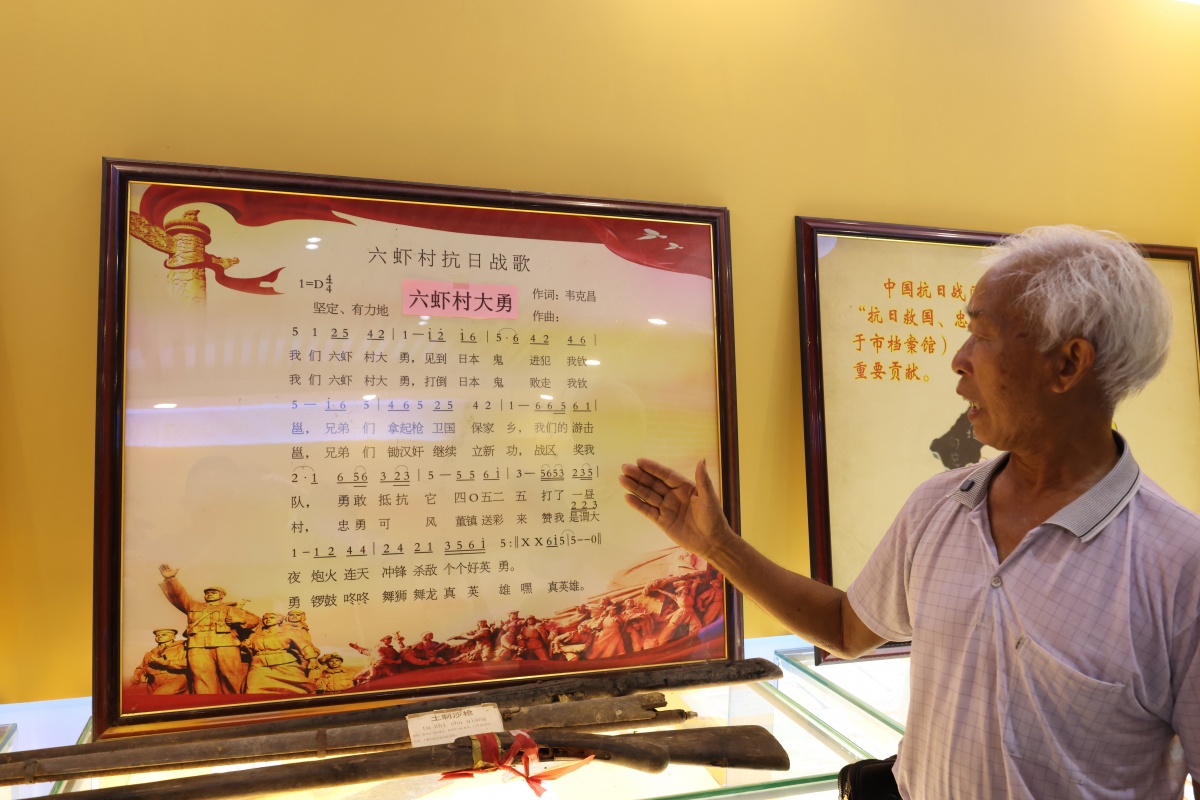 六虾村抗日战歌
1=D 4/4
六虾村大勇
作词：韦克昌
坚定、有力地
作曲：
5 1 25 42 | 1 — i2 i6 | 5·6 42 46 |
我们 六虾 村大 勇，见到 日本 鬼 进犯 我钦
我们 六虾 村大 勇，打倒 日本 鬼 败走 我钦
5 — i·6 5 | 465 25 42 | 1 — 665 61 |
邕，兄弟 们 拿起枪 卫国 保家 乡，我们的 游击
邕，兄弟 们 锄汉奸 继续 立新 功，战区 奖我
2·1 656 323 | 5 — 55 6i | 3 — 5653 235 |
队，勇敢 抵抗 它 四O五二 五 打了 一昼
223
村，忠勇 可 风 董镇 送彩 来 赞我 是谓大
1 – 12 44 | 24 21 356i 5 :‖ X X 6i5 | 5 – – 0 ‖
夜 炮火 连天 冲锋 杀敌 个个好英 勇。
勇 锣鼓 咚咚 舞狮 舞龙 真 英 雄 嘿 真英雄。
中国抗日战
“抗日救国、忠
于市档案馆）
重要贡献。
土制沙枪
tu zhi sha qiang